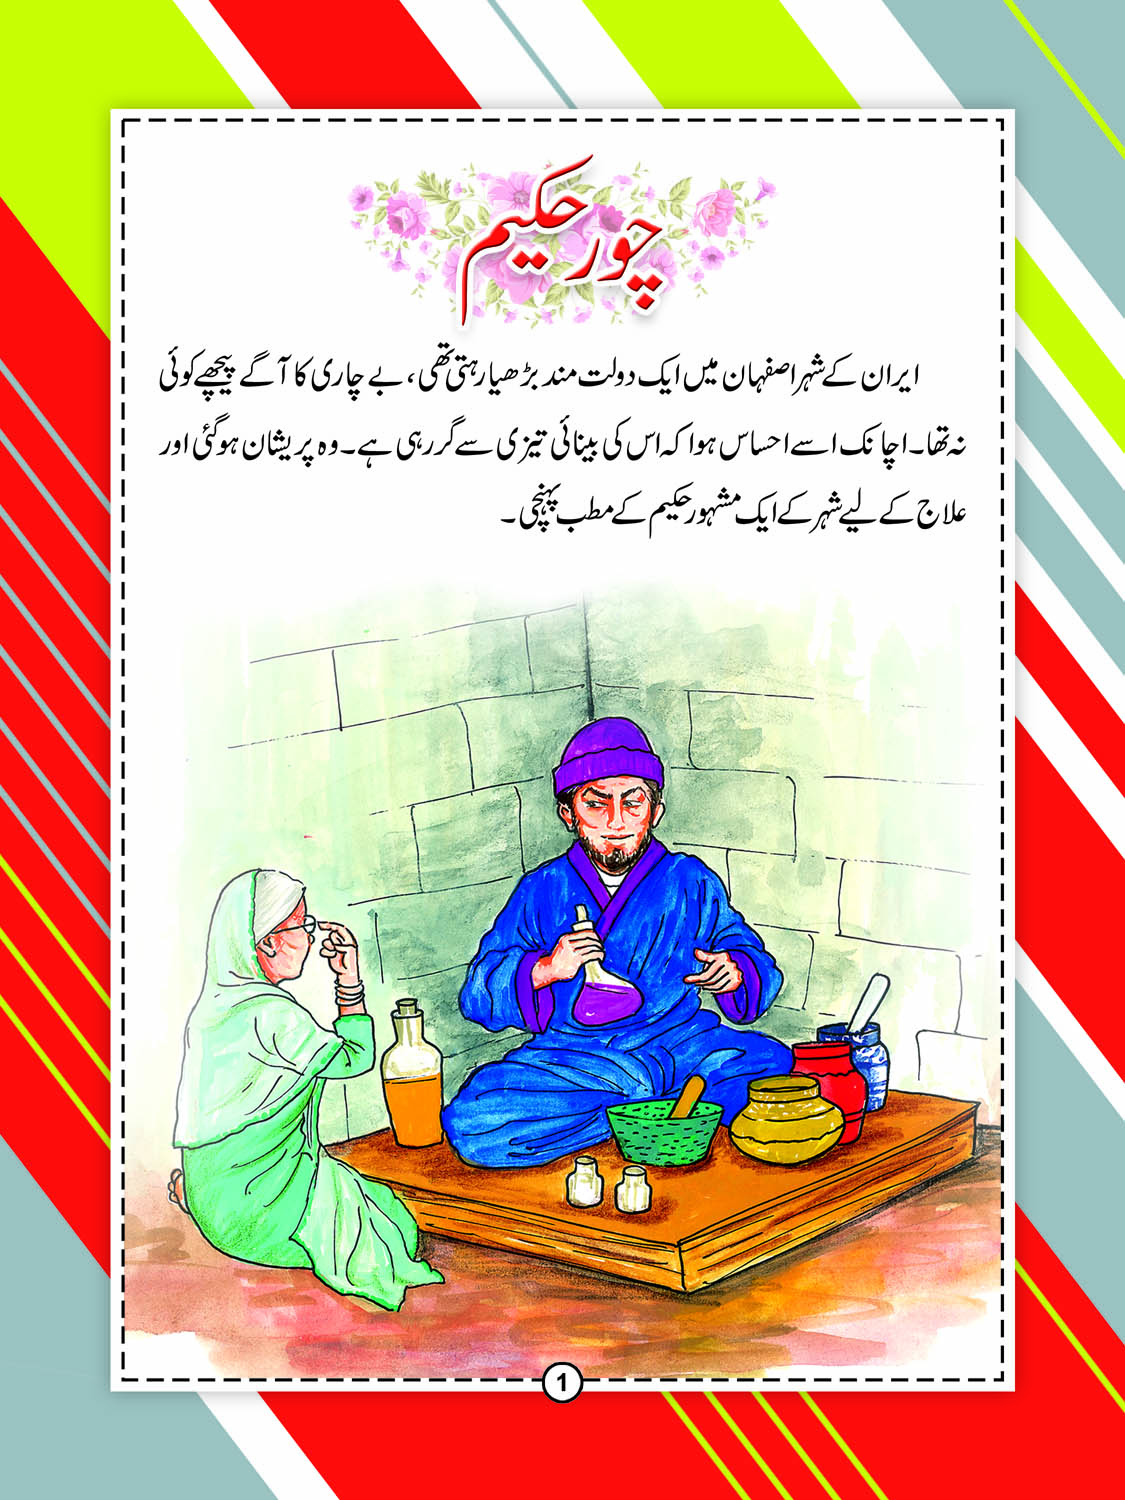 چور حکیم
ایران کے شہر اصفہان میں ایک دولت مند بڑھیا رہتی تھی، بے چاری کا آگے پیچھے کوئی
نہ تھا۔ اچانک اسے احساس ہوا کہ اس کی بینائی تیزی سے گر رہی ہے۔ وہ پریشان ہو گئی اور
علاج کے لیے شہر کے ایک مشہور حکیم کے مطب پہنچی۔
1